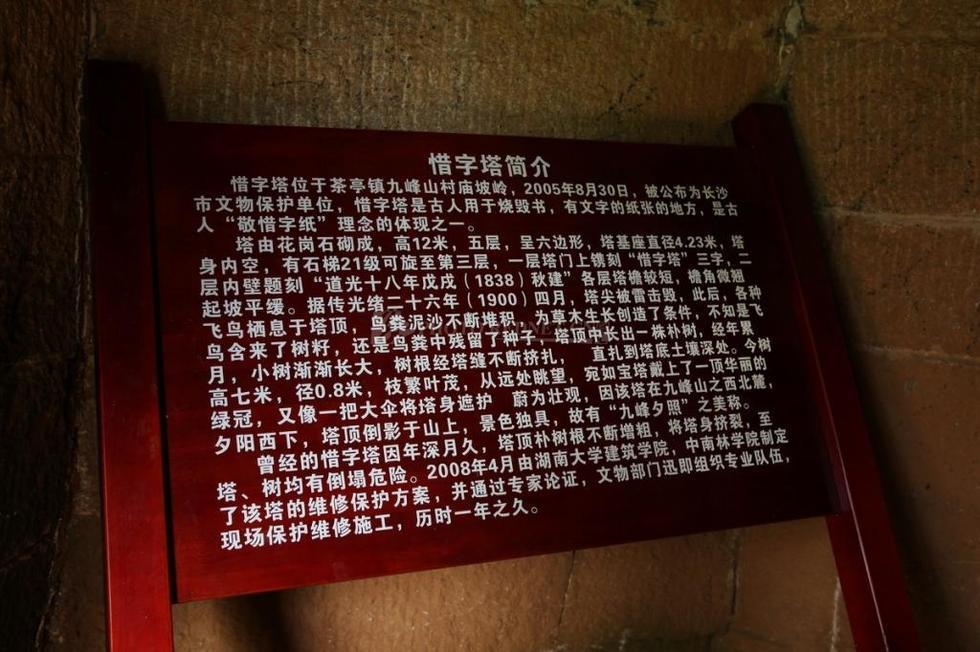 惜字塔简介
惜字塔位于茶亭镇九峰山村庙坡岭，2005年8月30日，被公布为长沙
市文物保护单位，惜字塔是古人用于烧毁书，有文字的纸张的地方，是古
人“敬惜字纸”理念的体现之一。
塔由花岗石砌成，高12米，五层，呈六边形，塔基座直径4.23米，塔
身内空，有石梯21级可旋至第三层，一层塔门上镌刻“惜字塔”三字，二
层内壁题刻“道光十八年戊戌（1838）秋建”各层塔檐较短，檐角微翘
起坡平缓。据传光绪二十六年（1900）四月，塔尖被雷击毁，此后，各种
飞鸟栖息于塔顶，鸟粪泥沙不断堆积，为草木生长创造了条件，不知是飞
鸟含来了树籽，还是鸟粪中残留了种子，塔顶中长出一株朴树，经年累
月，小树渐渐长大，树根经塔缝不断挤扎，直扎到塔底土壤深处。今树
高七米，径0.8米，枝繁叶茂，从远处眺望，宛如宝塔戴上了一顶华丽的
绿冠，又像一把大伞将塔身遮护 蔚为壮观，因该塔在九峰山之西北麓，
夕阳西下，塔顶倒影于山上，景色独具，故有“九峰夕照”之美称。
曾经的惜字塔因年深月久，塔顶朴树根不断增粗，将塔身挤裂，至
塔、树均有倒塌危险。2008年4月由湖南大学建筑学院，中南林学院制定
了该塔的维修保护方案，并通过专家论证，文物部门迅即组织专业队伍，
现场保护维修施工，历时一年之久。